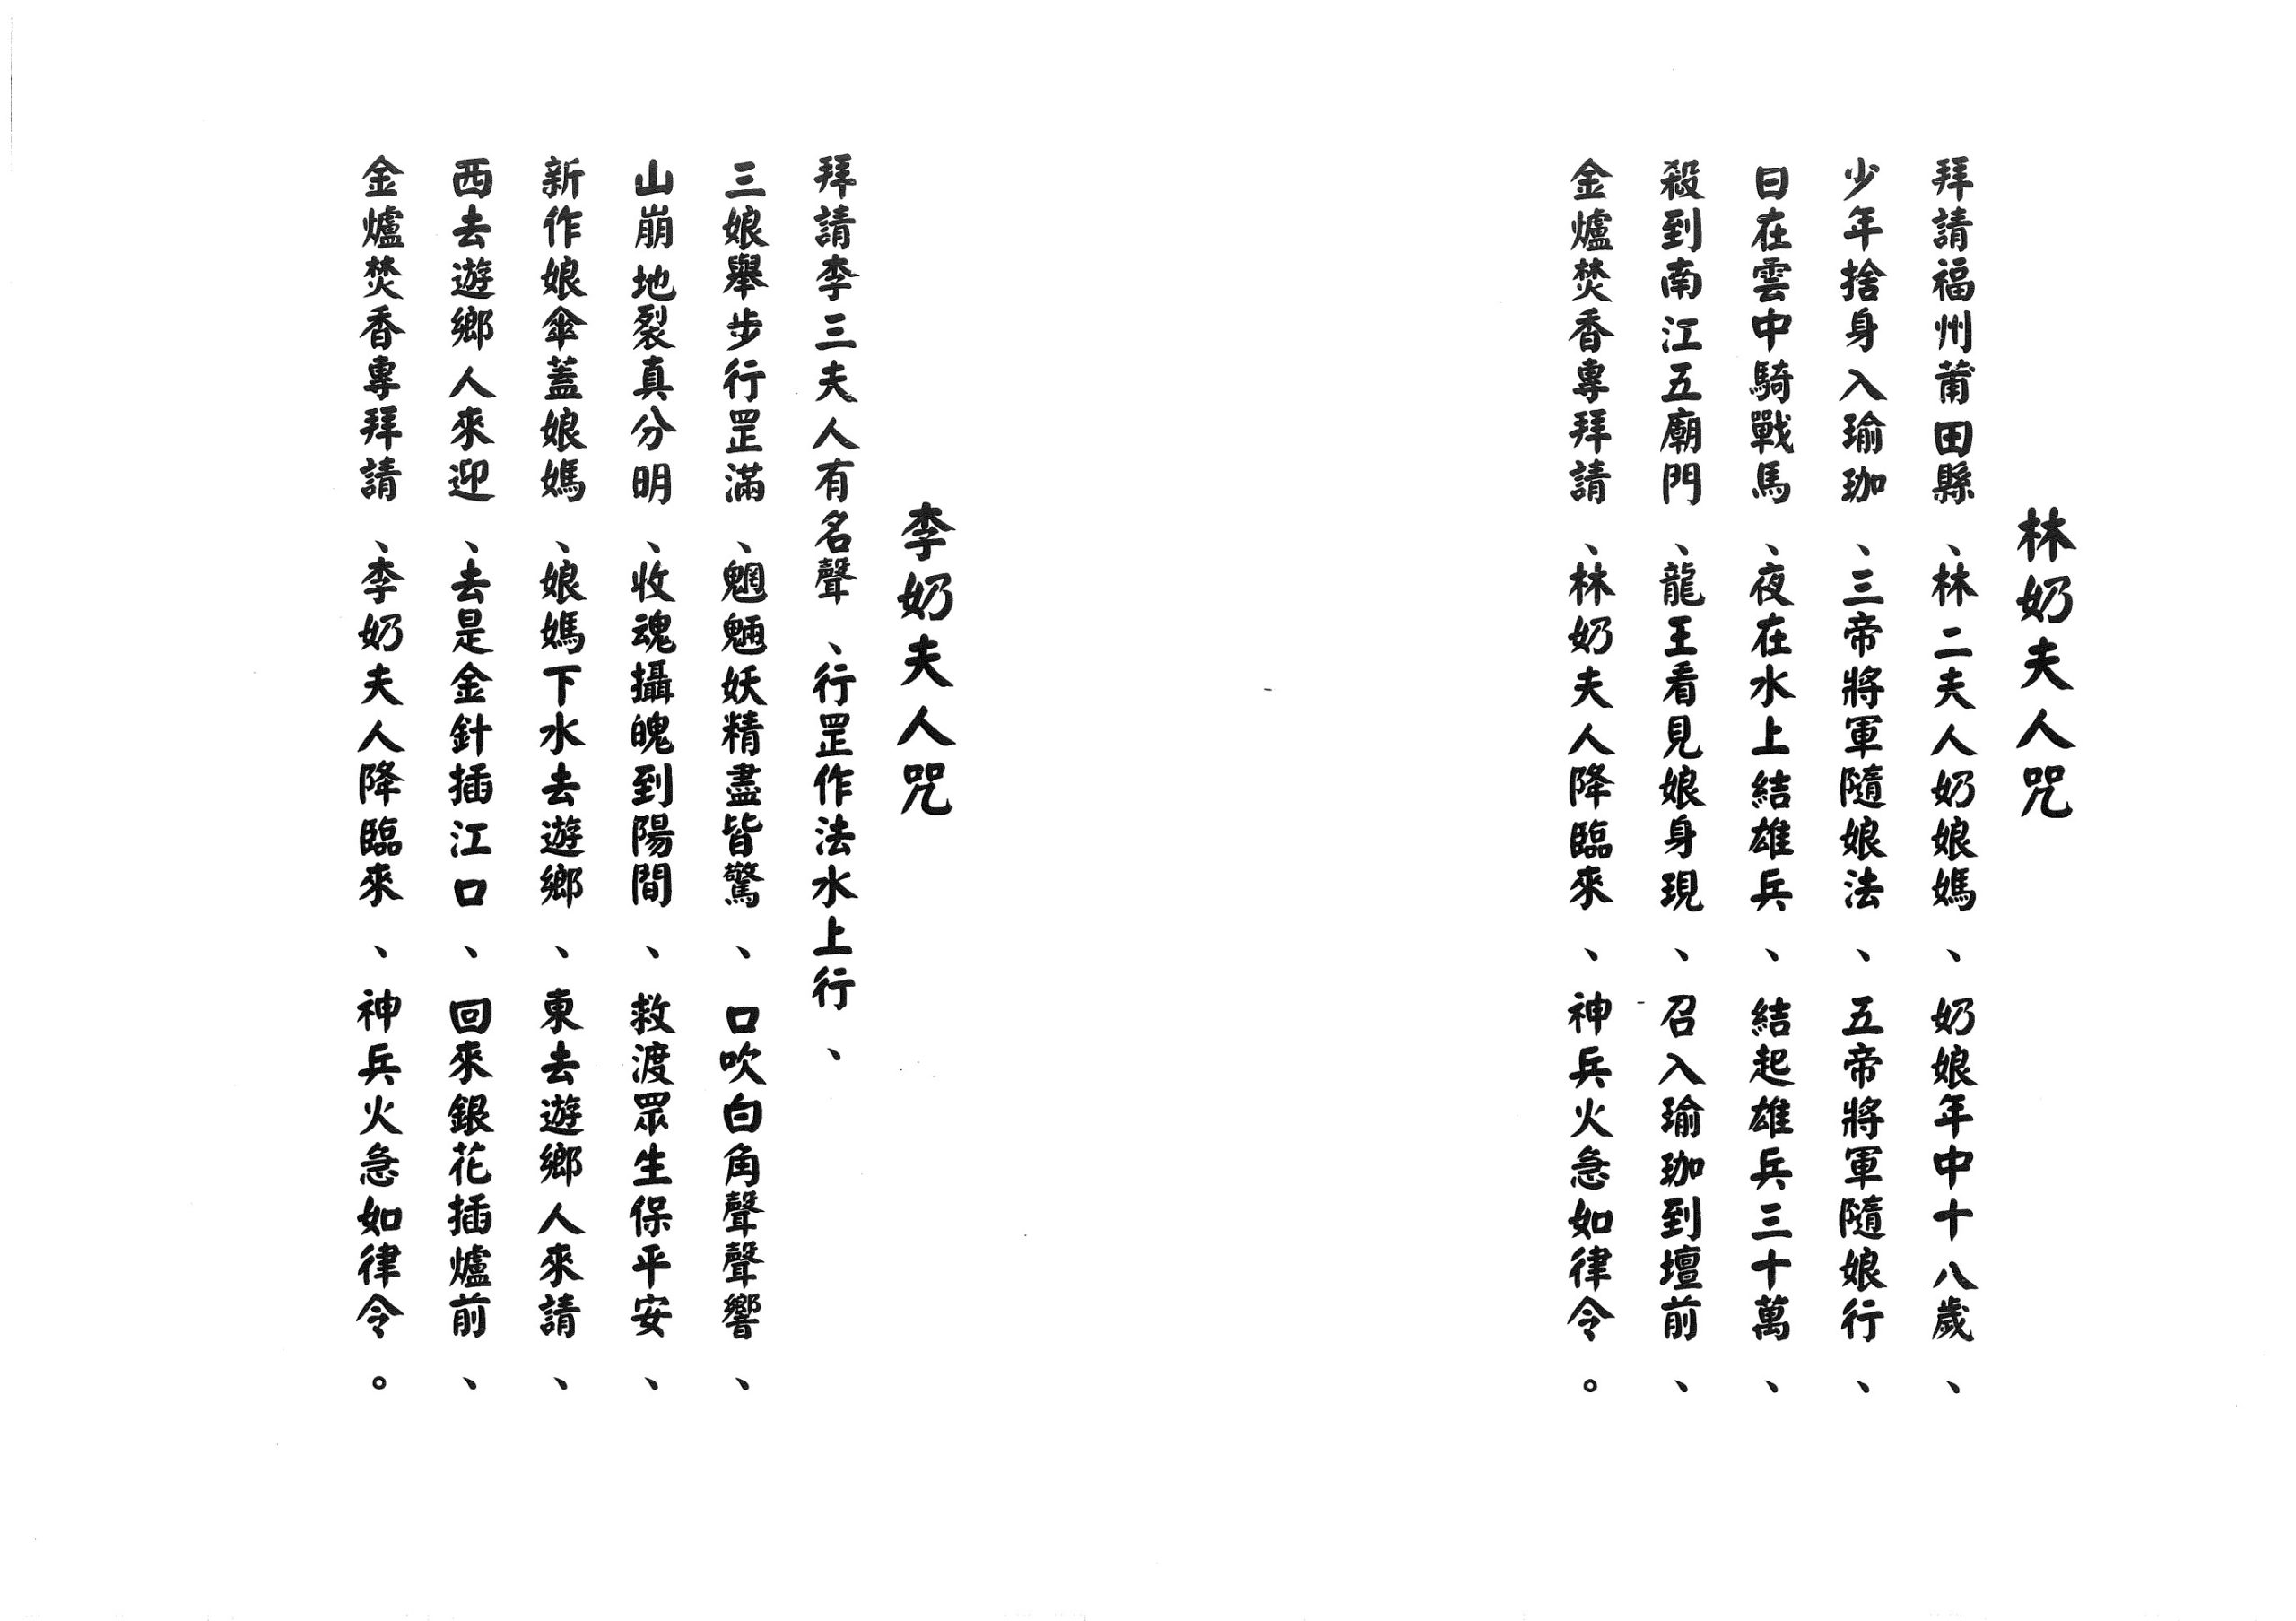 林奶夫人咒
拜請福州莆田縣、林二夫人奶娘媽、奶娘年中十八歲、
少年捨身入瑜珈、三帝將軍隨娘法、五帝將軍隨娘行、
日在雲中騎戰馬、夜在水上結雄兵、結起雄兵三十萬、
殺到南江五廟門、龍王看見娘身現、召入瑜珈到壇前、
金爐焚香專拜請、林奶夫人降臨來、神兵火急如律令。
李奶夫人咒
拜請李三夫人有名聲、行罡作法水上行、
三娘舉步行罡滿、魍魎妖精盡皆驚、口吹白角聲聲響、
山崩地裂真分明、收魂攝魄到陽間、救渡眾生保平安、
新作娘傘蓋娘媽、娘媽下水去遊鄉、東去遊鄉人來請、
西去遊鄉人來迎、去是金針插江口、回來銀花插爐前、
金爐焚香專拜請、李奶夫人降臨來、神兵火急如律令。